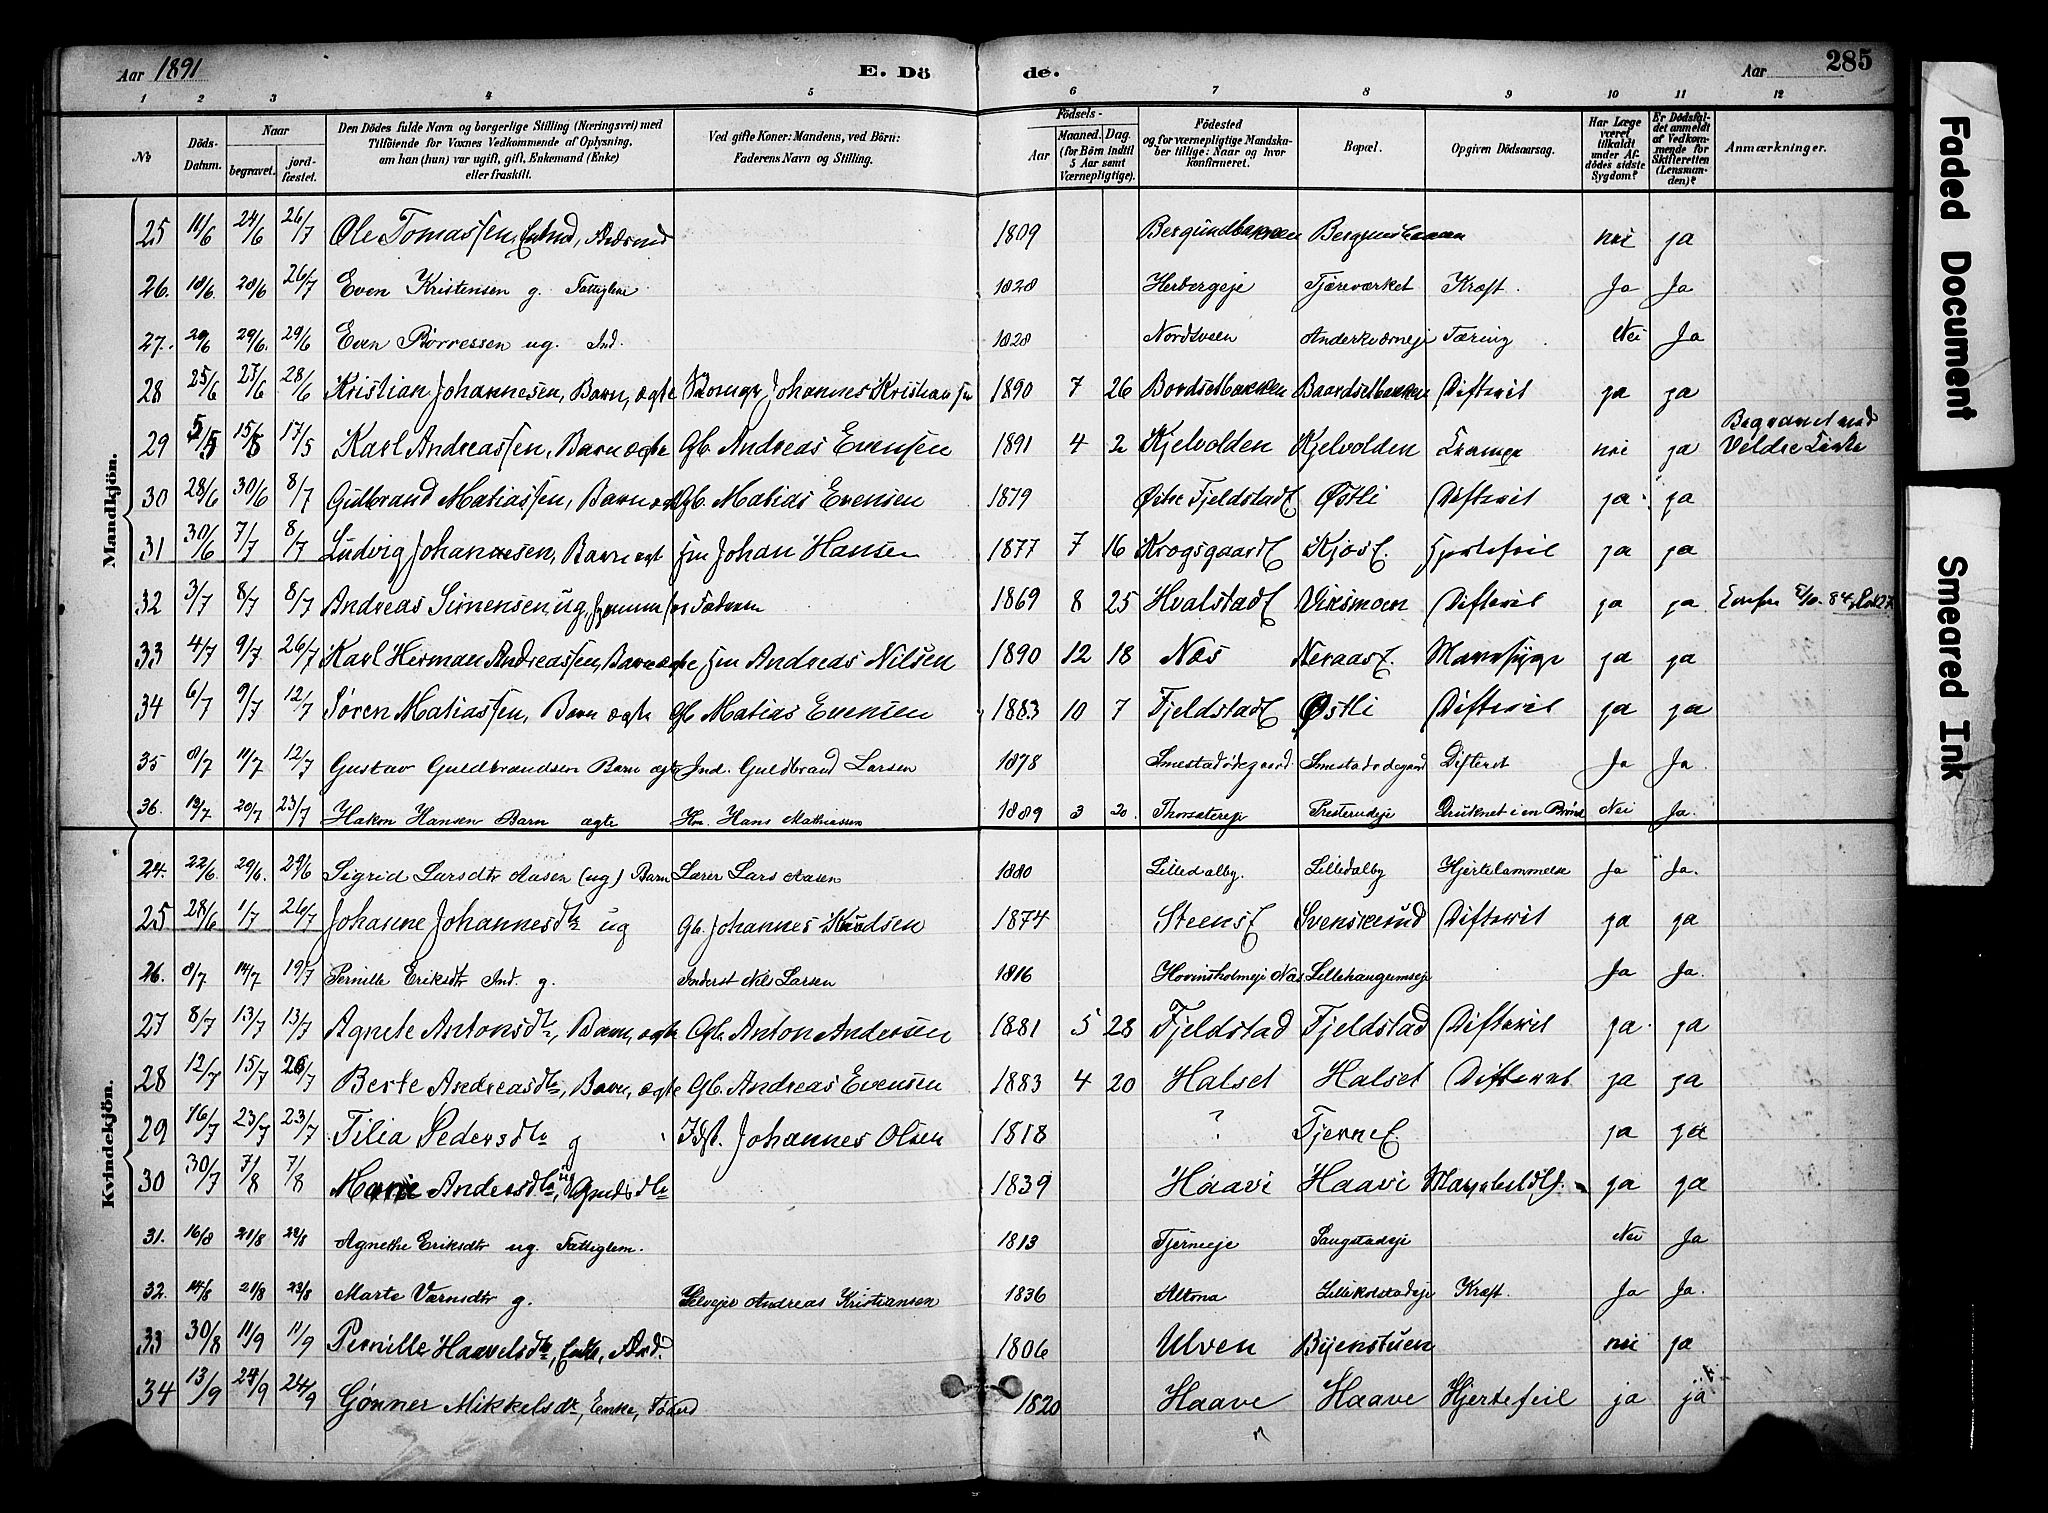 Aar 1891 E. Dö de. Aar 285
1 2 3 4 5 6 7 8 9 10 11 12
No
Döds-Datum.
Naar begravet. jordfæstet.
Den Dödes fulde Navn og borgerlige Stilling (Næringsvei) med Tilföiende for Voxnes Vedkommende af Oplysning, om han (hun) var ugift, gift, Enkemand (Enke) eller fraskilt.
Ved gifte Koner: Mandens, ved Börn: Faderens Navn og Stilling.
Födsels- Aar Maaned. Dag. (for Börn indtil 5 Aar samt Værnepligtige).
Födested og for værnepligtige Mandskaber tillige: Naar og hvor konfirmeret.
Bopæl.
Opgiven Dödsaarsag.
Har Læge været tilkaldt under Afdödes sidste Sygdom?
Er Dödsfaldet anmeldt af Vedkommende for Skifteretten (Lensmanden)?
Anmærkninger.
Mandkjön.
25 11/6 24/6 26/7 Ole Tomassen, 1809 nei ja
26. 18/6. 28/6 26/7 Even Kristensen g. Fattiglem 1828 Herbergeje Tjæreværket Kræft. Ja Ja
27. 20/6 29/6. 29/6 Even Börressen ug. Ind. 1828 Nordsveen Tæring Nei Ja
28 25/6 27/6 28/6 Kristian Johannesen, Barn, ægte Johannes Kristiansen 1890 7 26 Bordsetbakken Baardsetbakken Difterit ja ja
29 5/5 15/5 17/5 Karl Andreassen, Barn ægte Gb. Andreas Evensen 1891 4 2 Kjelvolden Kjelvolden Krampe nei ja Begravet ved Veldre Kirke
30 28/6 30/6 8/7 Gulbrand Matiassen, Barn ægte Gb. Matias Evensen 1879 Østre Fjeldstad Østli Difterit ja ja
31 30/6 7/7 8/7 Ludvig Johannesen, Barn ægte Hm Johan Hansen 1877 7 16 Krogsgaard Kjos Hjertefeil ja ja
32 3/7 8/7 8/7 Andreas Simensen ug, hjemme hos Faderen 1869 8 25 Hvalstad Difterit ja ja
33 4/7 9/7 26/7 Karl Herman Andreassen, Barn ægte Hm Andreas Nilsen 1890 12 18 Næs Mavesyge ja ja
34 6/7 9/7 12/7 Søren Matiassen, Barn ægte Gb Matias Evensen 1883 10 7 Fjeldstad Østli Difterit ja ja
35 8/7 11/7 12/7 Gustav Guldbrandsen Barn ægte Ind. Guldbrand Larsen 1878 Smestadødegaard. Smestadødegaard Difterit Ja Ja.
36. 13/7 20/7 23/7 Hakon Hansen Barn ægte Hans Mathiassen 1889 3 20. Thorsætereje Presterudeje Druknet i en Brønd Nei Ja.
Kvindekjön.
24. 22/6. 29/6. 29/6 Sigrid Larsdtr Aasen (ug) Barn Lærer Lars Aasen 1880 Lilledalby. Lilledalby Hjertelammelse Ja Ja.
25 28/6 1/7 26/7 Johanne Johannesdtr ug Gb. Johannes Knudsen 1874 Steens Svenskerud Difterit ja ja
26. 8/7 14/7 19/7 Pernille Eriksdtr Ind. g. Inderst Nils Larsen 1816 Hovinsholmeje Næs Lillehaugumseje Ja Ja.
27 8/7 13/7 13/7 Agnete Antonsdtr, Barn, ægte Gb. Anton Andersen 1881 5 28 Fjeldstad Fjeldstad Difterit ja ja
28 12/7 15/7 26/7 Berte Andreasdtr, Barn, ægte Gb. Andreas Evensen 1883 4 20 Halset Halset Difterit ja ja
29 16/7 23/7 23/7 Tilia Pedersdtr g Idst. Johannes Olsen 1818 ? Tjerne ja ja
30 30/7 7/8 7/8 Marie Andersdtr, ug 1839 Haavi Haavi ja ja
31. 16/8 21/8 22/8 Agnethe Eriksdtr ug. Fattiglem. 1813 Tjerneeje Saugstadeje Nei Ja
32. 14/8 21/8 23/8 Marte Værnsdtr g. Selvejer Andreas Kristiansen 1836 Altona Lillekolstadeje Kræft. Ja Ja.
33 30/8 11/9 11/9 Pernille Haavelsdtr, Enke, 1806 Ulven nei ja
34 13/9 24/9 24/9 Gønner Mikkelsdtr, Enke, Föderd 1820 Haave Haave Hjertefeil ja ja
Faded Document
Smeared Ink